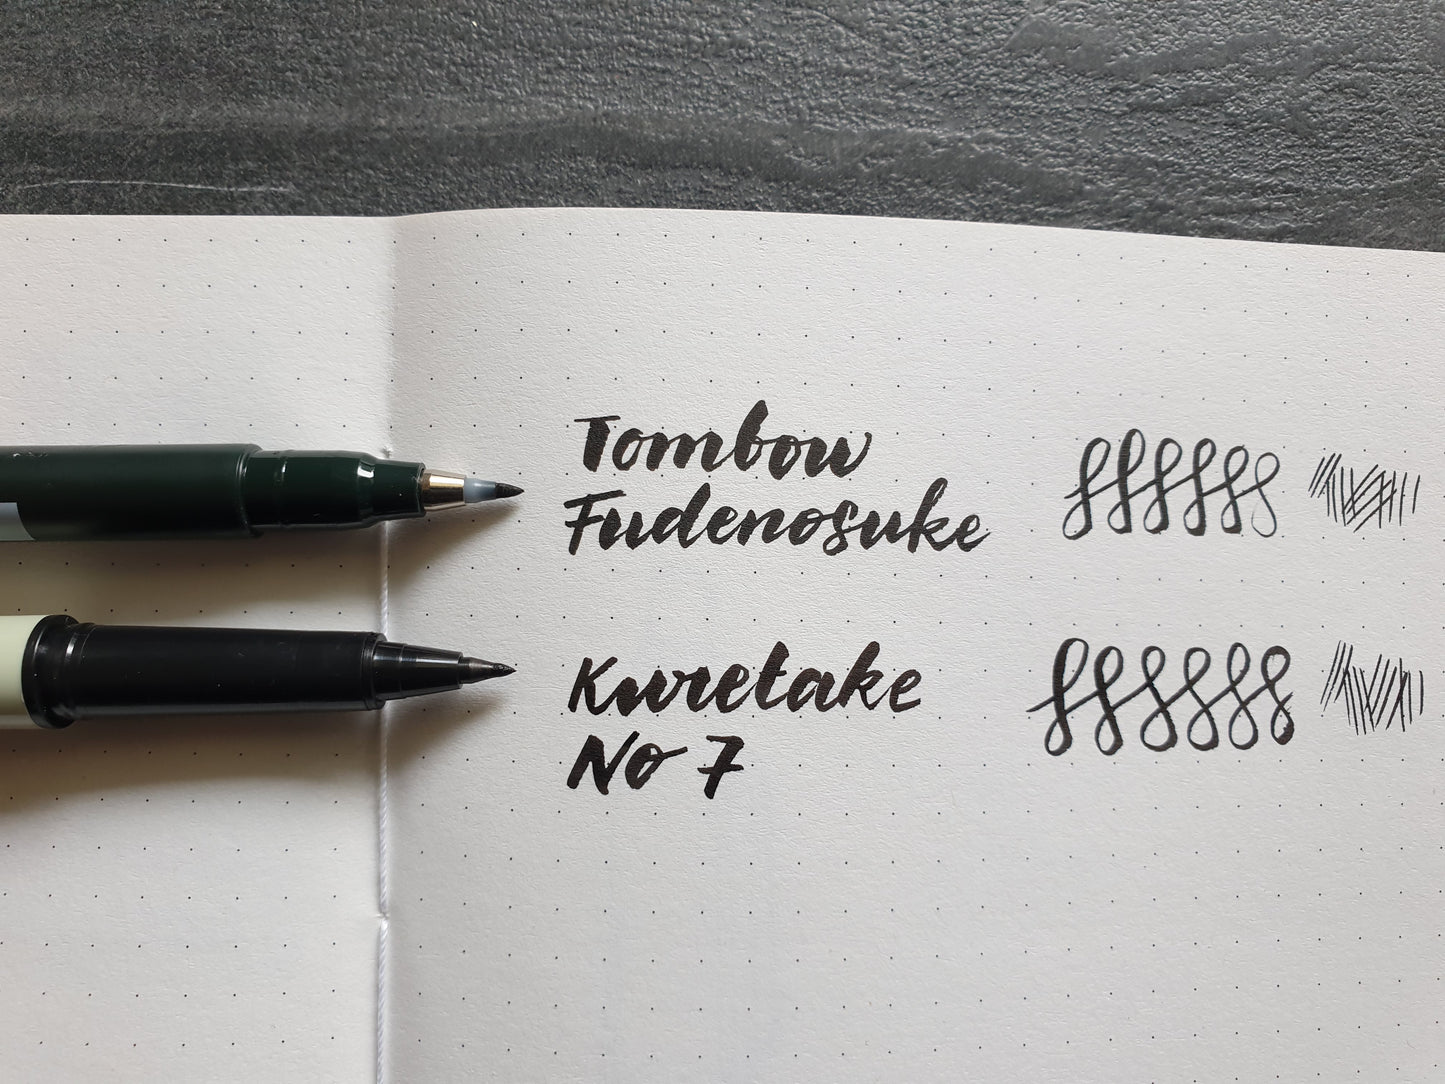 Tombow
Fudenosuke
Kuretake
No 7